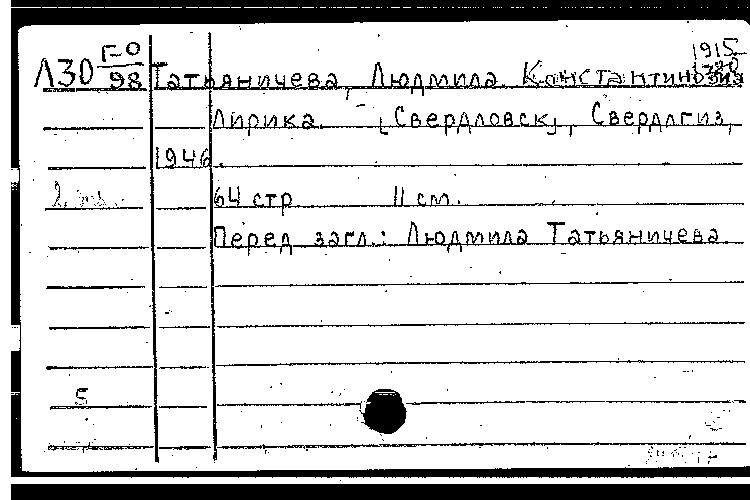 Л30 F-O
98
1915-1980
Татьяничева, Людмила Константиновна
Лирика. [Свердловск], Свердлгиз,
1946.
64 стр. 11 см.
Перед загл.: Людмила Татьяничева.
5